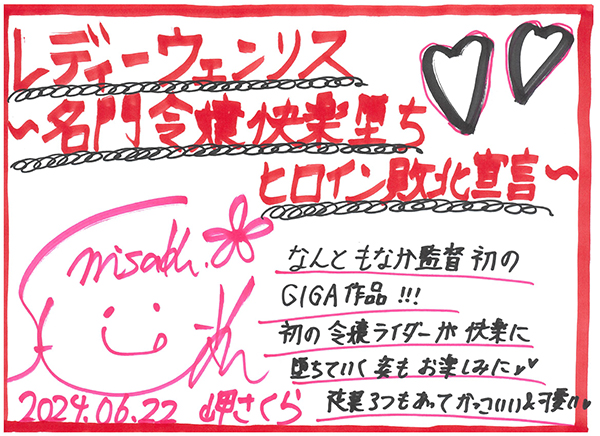 レディーウェンリス
〜名門令嬢快楽堕ち
ヒロイン敗北宣言〜
misaki.
なんともなか監督初の
GIGA作品!!!
初の令嬢ライダーが快楽に
堕ちていく姿もお楽しみに♥♥
衣装3つもあってかっこいい&可愛い♥
2024.06.22 岬さくら